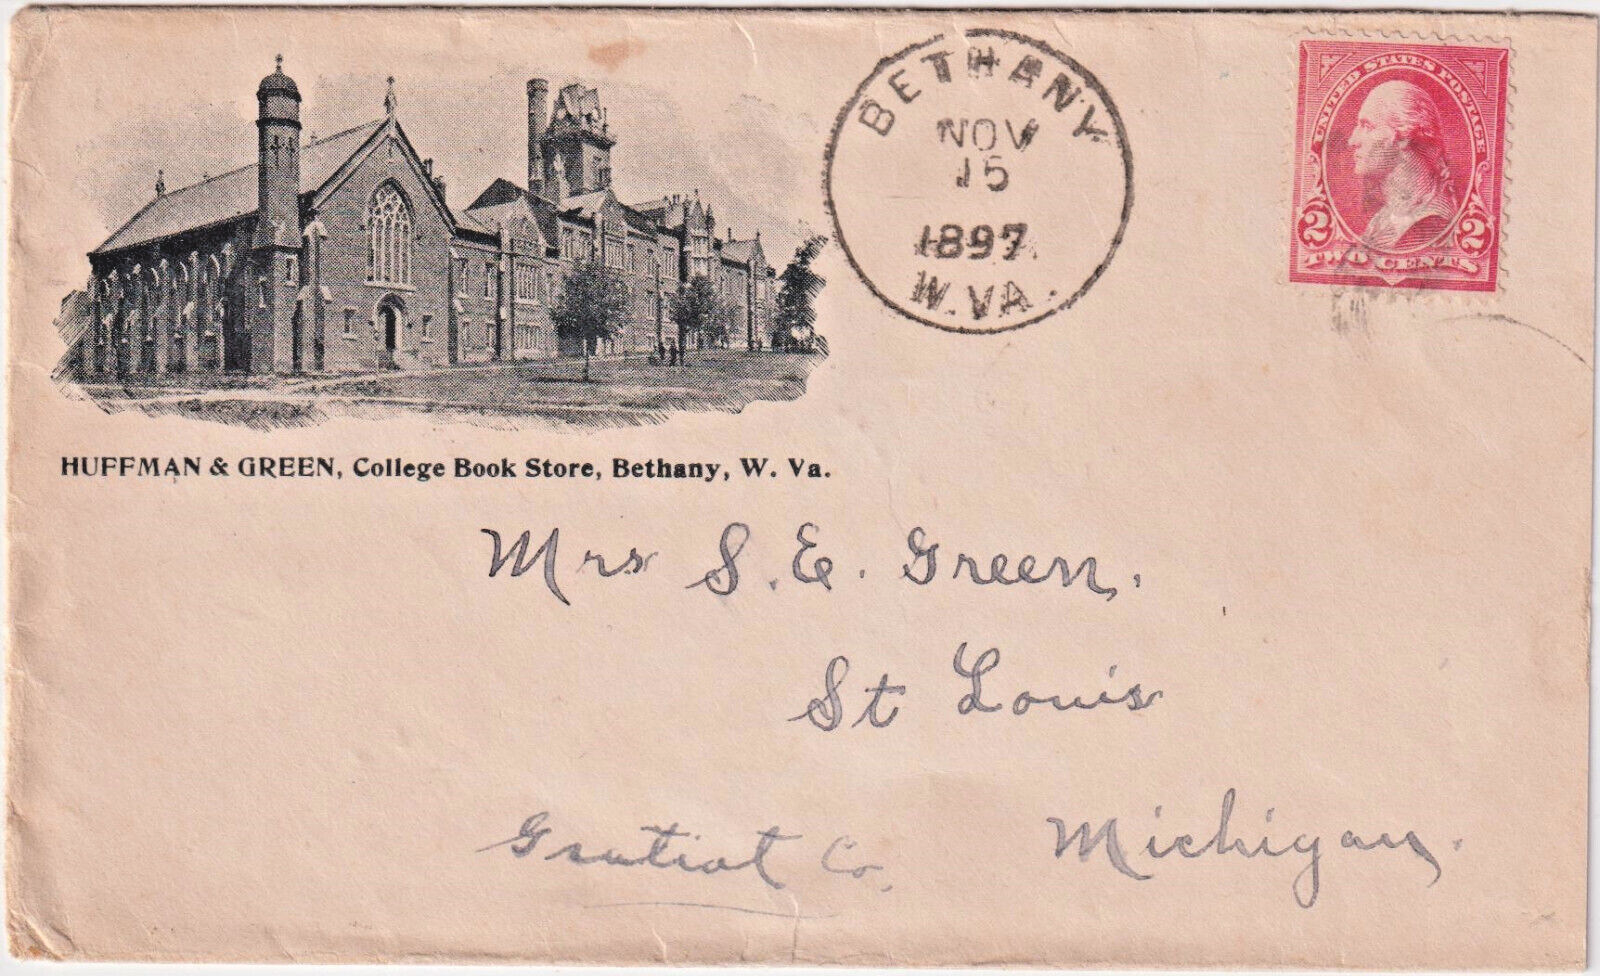 BETHANY
NOV
15
1897
W.VA.
UNITED STATES POSTAGE
2 2
TWO CENTS
HUFFMAN & GREEN, College Book Store, Bethany, W. Va.
Mrs S. E. Green.
St Louis
Gratiot Co.
Michigan.